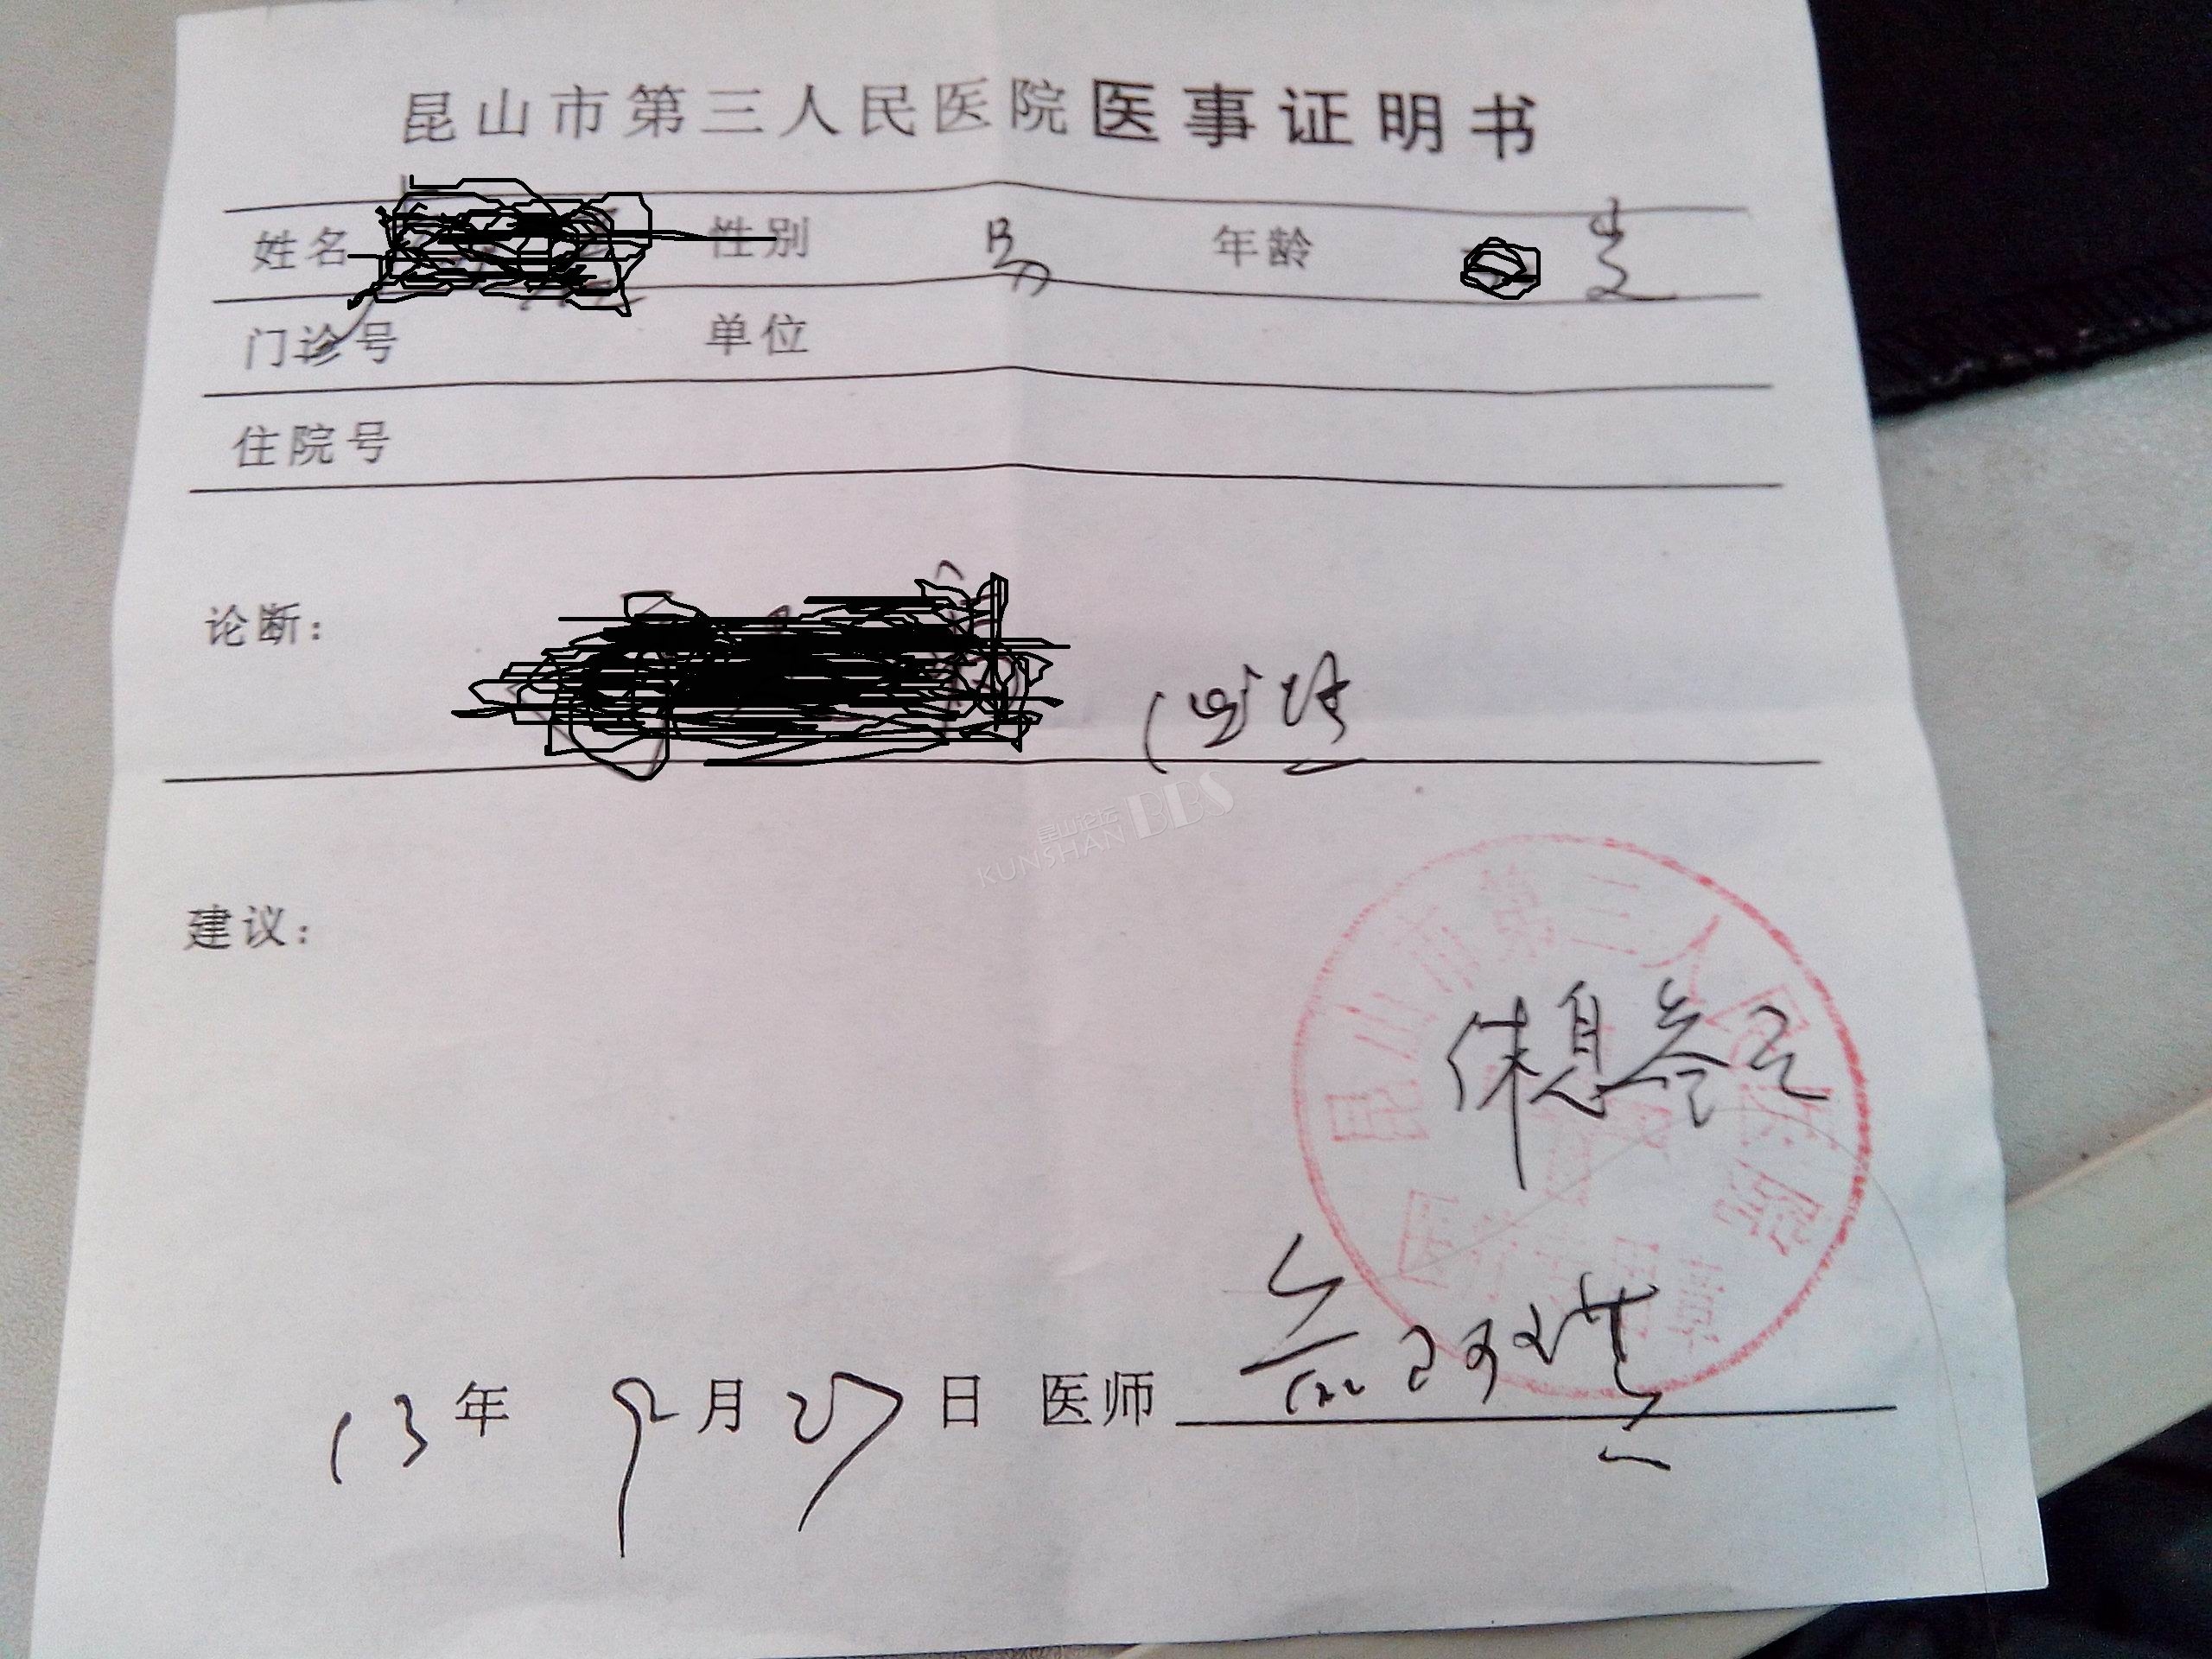 昆山市第三人民医院医事证明书
姓名 性别 男 年龄 岁
门诊号 单位
住院号
论断：
昆山论坛
KUNSHAN BBS
建议：
昆山市第三人民医院
休息叁天
13年 9月27日 医师